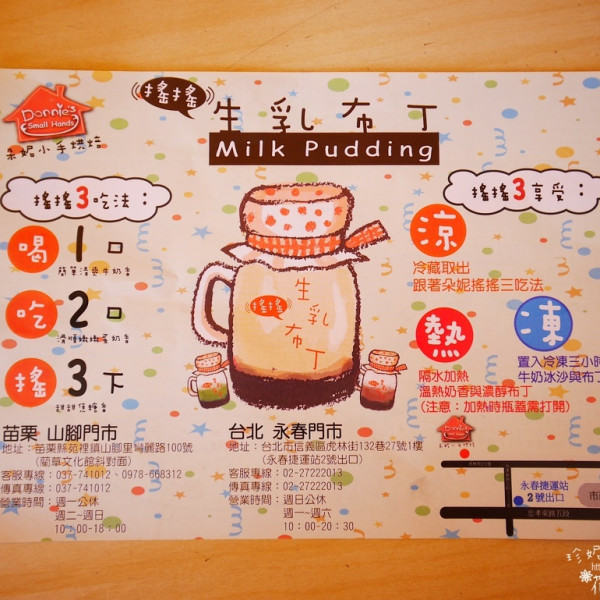 Donnie's
Small Hands
朵妮小手烘焙
搖搖
生乳布丁
Milk Pudding
搖搖3吃法：
喝 1口
簡單清爽牛奶香
吃 2口
滑順嫩嫩蛋奶香
搖 3下
甜甜焦糖香
搖搖
生乳
布丁
搖搖3享受：
涼
冷藏取出
跟著朵妮搖搖三吃法
熱
隔水加熱
溫熱奶香與濃醇布丁
(注意：加熱時瓶蓋需打開)
凍
置入冷凍三小時
牛奶冰沙與布丁
苗栗 山腳門市
地址：苗栗縣苑裡鎮山腳里彎麗路100號
(藺草文化館斜對面)
客服專線：037-741012、0978-668312
傳真專線：037-741012
營業時間：週一公休
週二~週日
10：00-18：00
台北 永春門市
地址：台北市信義區虎林街132巷27號1樓
(永春捷運站2號出口)
客服專線：02-27222013
傳真專線：02-27222013
營業時間：週日公休
週一~週六
10：00-20：30
永春捷運站
2號出口
忠孝東路五段
市
珍妮